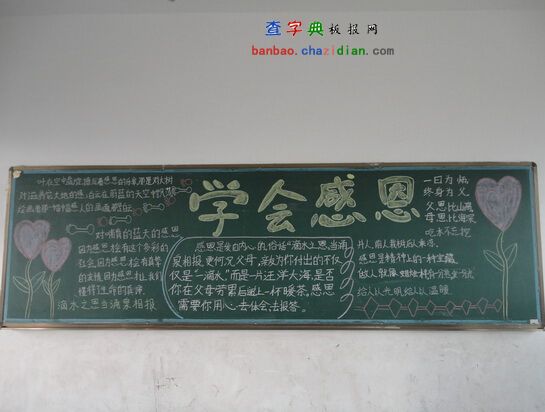 查字典板报网
banbao.chazidian.com
学会感恩
叶在空中盘旋,谱写着感恩的乐章,那是对大树
对滋养它大地的感恩;白云在蔚蓝的天空中飘
绘画着那一幅幅感人的画面,那是
对哺育的蓝天的感恩
因为感恩才会有这个多彩的
社会,因为感恩才会有真挚
的友情,因为感恩才让我们
懂得生命的真谛。
滴水之恩当涌泉相报
感恩是发自内心的,俗话"滴水之恩,当涌
泉相报。更何况父母,亲友为你付出的不仅
仅是一"滴水",而是一片汪洋大海,是否
你在父母劳累后递上一杯暖茶,感恩
需要你用心去体会,去报答。
一日为师
终身为父。
父恩比山高
母恩比海深
吃水不忘挖
井人,前人栽树后人乘凉。
感恩是精神上的一种宝藏
做人就像蜡烛
给人以光明,给人以温暖